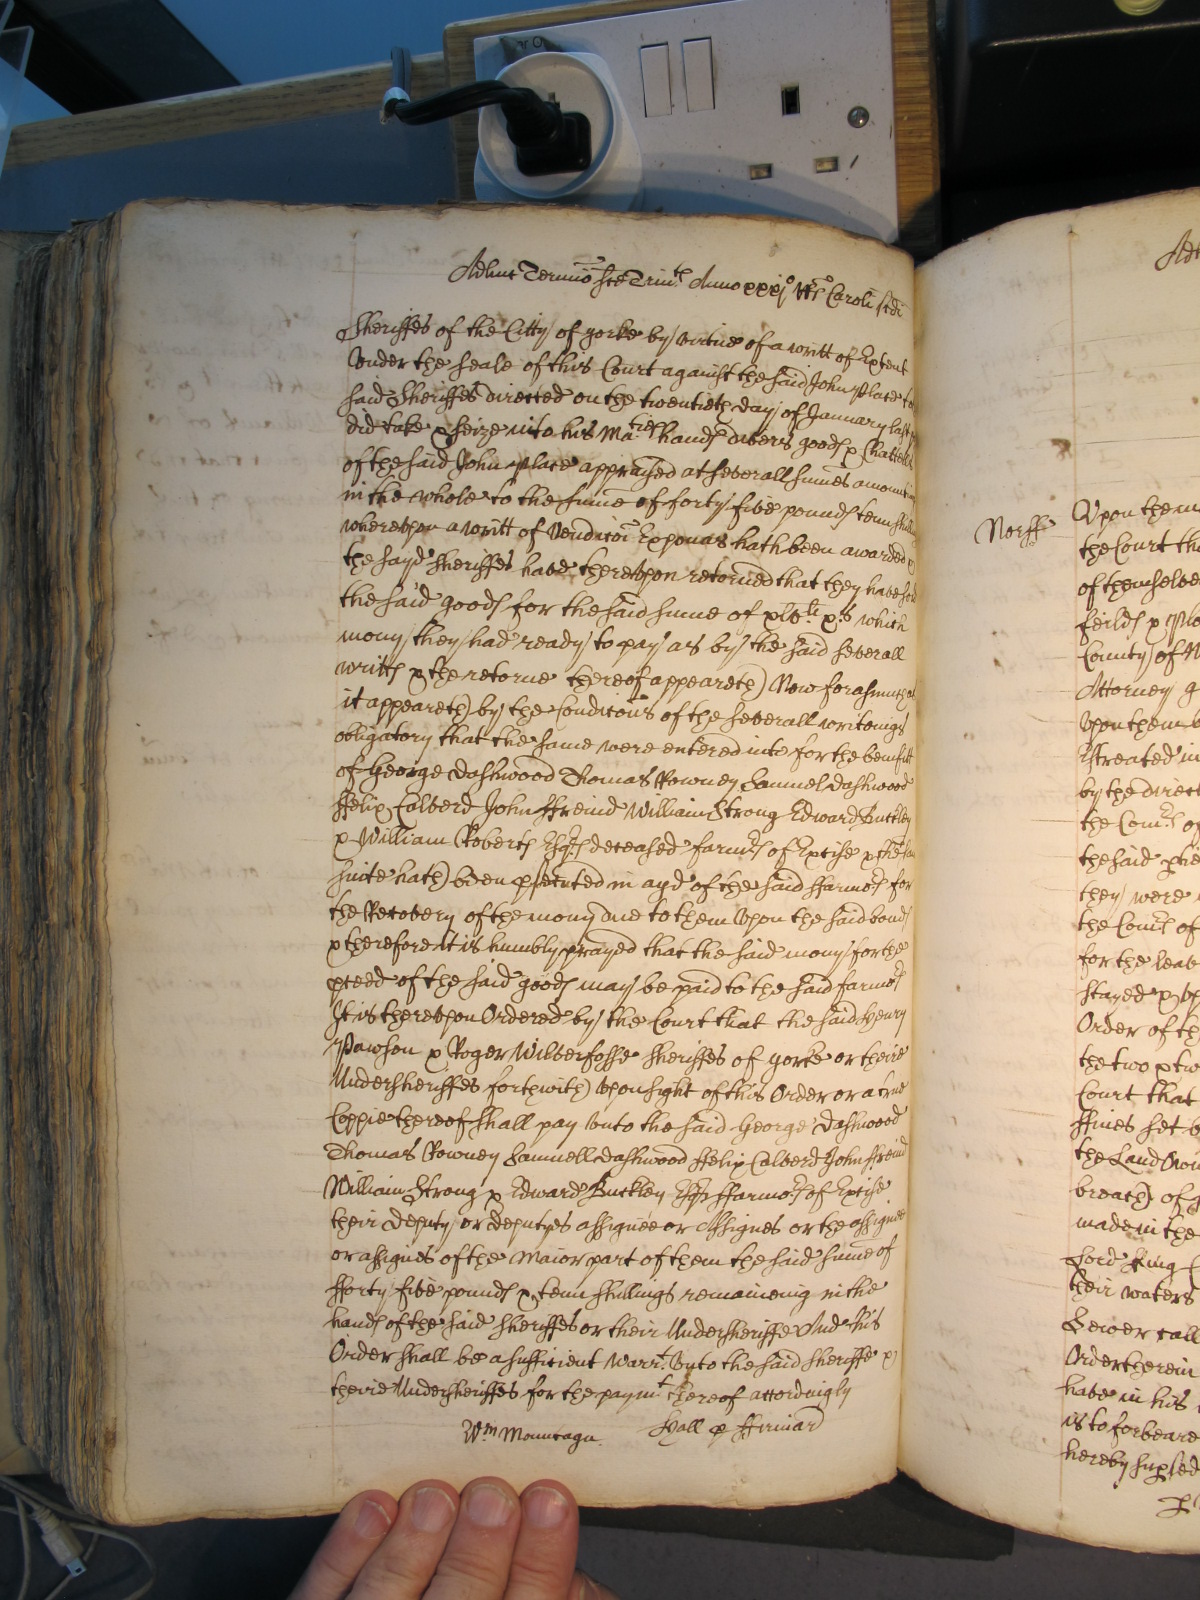 Adhuc Termino Sce Trin. Anno xxxjo Rs Caroli scdi
Sheriffes of the Citty of Yorke by virtue of a writt of Extent
Vnder the seale of this Court against the said John Place to
said Sheriffes directed on the twentieth day of January last
did take & seize into his Ma:ties hands divers goods & Chattells
of the said John Place appraysed at severall sumes amounting
in the whole to the sume of forty five pounds tenn shillings
wherevpon a writt of Venditioni Exponas hath been awarded
the sayd Sheriffes have therevpon retorned that they have sold
the said goods for the said sume of xlv:li x:s which
mony they had ready to pay as by the said severall
writts & the retorne thereof appeareth) Now forasmuch as
it appeareth) by the Conditions of the severall writeings
obligatory that the same were entered into for the benefitt
of George Dashwood Thomas Rowney Samuel Dashwood
Ffelix Calverd John Ffreind William Strong Edward Buckley
& William Roberts Esqrs deceased farmrs of Excise & the
suite hath) been psecuted in ayd of the said Ffarmors for
the Recovery of the mony due to them Vpon the said bonds
& therefore it is humbly prayed that the said mony for the
pceed of the said goods may be paid to the said farmors
It is therevpon Ordered by the Court that the said Henry
Pawson & Roger Wilberfosse Sheriffes of Yorke or theire
Vndersheriffes forthwith) vpon sight of this Order or a true
Coppie thereof shall pay Vnto the said George Dashwood
Thomas Rowney Samuell Dashwood Ffelix Calverd John Ffreind
William Strong & Edward Buckley Esqrs Ffarmors of Excise
their deputy or deputyes assignee or Assignes or the assignee
or assignes of the Maior part of them the said sume of
Fforty five pounds & tenn shillings remaineing in the
hands of the said Sheriffes or their Vndersheriffe And this
Order shall be a sufficient Warrt: Vnto the said Sheriffe &
theire Vndersheriffes for the paymt thereof accordingly
Wm Mountagu Hall &
Norff
Vpon the
the Court
of themselves
feilds &
County of
Attorney
Vpon them
Estreated in
by the
the Comrs of
the said
they were
the Comrs of
for the
stayed &
Order of
the two &
Court that
Ffines set
the Land
breach) of
made in the
Lord King
their waters
Sewer
Order therein
have in his
is to forbeare
hereby